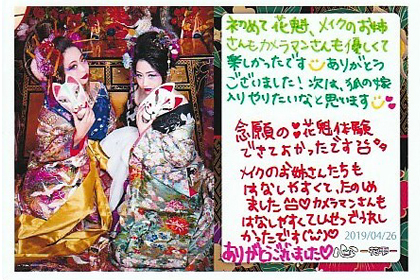 初めて花魁、メイクのお姉
さんもカメラマンさんも優しくて
楽しかったです ありがとう
ございました！次は、狐の嫁
入りやりたいなと思います
念願の♥花魁体験
できてよかったです
メイクのお姉さんたちも
はなしやすくて、たのしめ
ました カメラマンさんも
はなしやすくてしんせつでうれし
かったです(ω)♡
ありがとうございました♥
2019/04/26